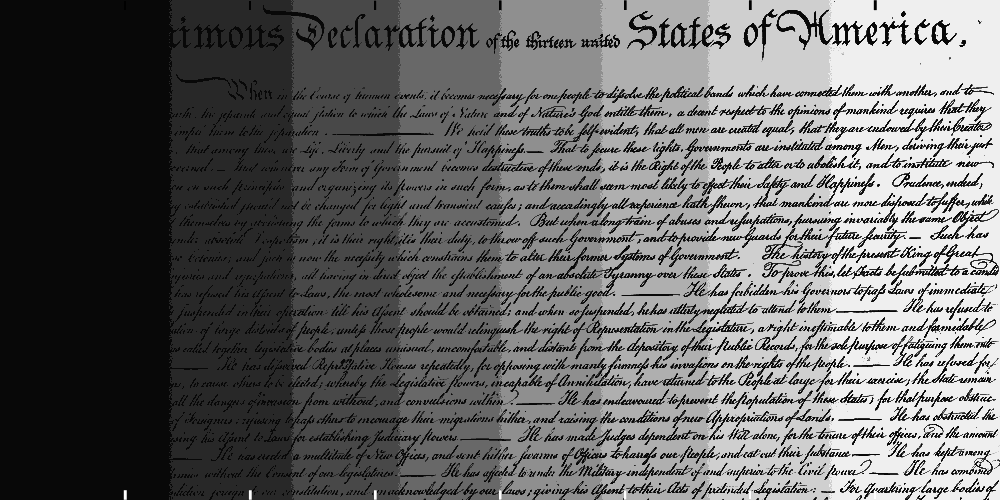 nimous Declaration of the thirteen united States of America,
When in the Course of human events, it becomes necessary for one people to dissolve the political bands which have connected them with another, and to
earth, the separate and equal station to which the Laws of Nature and of Nature's God entitle them, a decent respect to the opinions of mankind requires that they
impel them to the separation. We hold these truths to be self-evident, that all men are created equal, that they are endowed by their Creator
that among these are Life, Liberty and the pursuit of Happiness.— That to secure these rights, Governments are instituted among Men, deriving their just
governed. — That whenever any Form of Government becomes destructive of these ends, it is the Right of the People to alter or to abolish it, and to institute new
on such principles and organizing its powers in such form, as to them shall seem most likely to effect their Safety and Happiness. Prudence, indeed,
established should not be changed for light and transient causes; and accordingly all experience hath shewn, that mankind are more disposed to suffer, while
themselves by abolishing the forms to which they are accustomed. But when a long train of abuses and usurpations, pursuing invariably the same Object
under absolute Despotism, it is their right, it is their duty, to throw off such Government, and to provide new Guards for their future security. — Such has
Colonies; and such is now the necessity which constrains them to alter their former Systems of Government. The history of the present King of Great
injuries and usurpations, all having in direct object the establishment of an absolute Tyranny over these States. To prove this, let Facts be submitted to a candid
has refused his Assent to Laws, the most wholesome and necessary for the public good. He has forbidden his Governors to pass Laws of immediate
suspended in their operation till his Assent should be obtained; and when so suspended, he has utterly neglected to attend to them He has refused to
of large districts of people, unless those people would relinquish the right of Representation in the Legislature, a right inestimable to them and formidable
has called together legislative bodies at places unusual, uncomfortable, and distant from the depository of their Public Records, for the sole purpose of fatiguing them into
He has dissolved Representative Houses repeatedly, for opposing with manly firmness his invasions on the rights of the people. He has refused for
to cause others to be elected; whereby the Legislative powers, incapable of Annihilation, have returned to the People at large for their exercise; the State remain
all the dangers of invasion from without, and convulsions within. He has endeavoured to prevent the population of these States; for that purpose obstruc
of Foreigners; refusing to pass others to encourage their migrations hither, and raising the conditions of new Appropriations of Lands. He has obstructed the
using his Assent to Laws for establishing Judiciary powers He has made Judges dependent on his Will alone, for the tenure of their offices, and the amount
He has erected a multitude of New Offices, and sent hither swarms of Officers to harass our people, and eat out their substance. He has kept among
Armies without the Consent of our legislatures. He has affected to render the Military independent of and superior to the Civil power. He has combined
foreign to our constitution, and unacknowledged by our laws; giving his Assent to their Acts of pretended Legislation: — For Quartering large bodies of